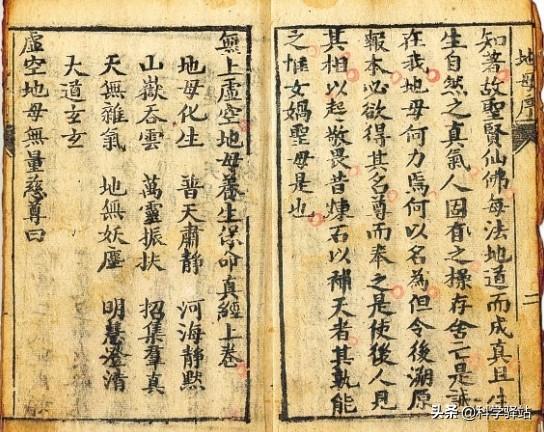 地母序
二
知著故聖賢仙佛每法地道而成真且生
生自然之真氣人固有之操存舍亡是誠
在我地母何力焉何以名為但令後溯原
報本必欲得其名尊而奉之是使後人見
其相以起敬畏昔煉石以補天者其孰能
之惟女媧聖母是也
無上虛空地母養生保命真經上卷
地母化生 普天肅靜 河海靜默
山嶽吞雲 萬靈振扶 招集羣真
天無雜氣 地無妖塵 明慧澄清
大道玄玄
虛空地母無量慈尊曰
头条 @科学驿站